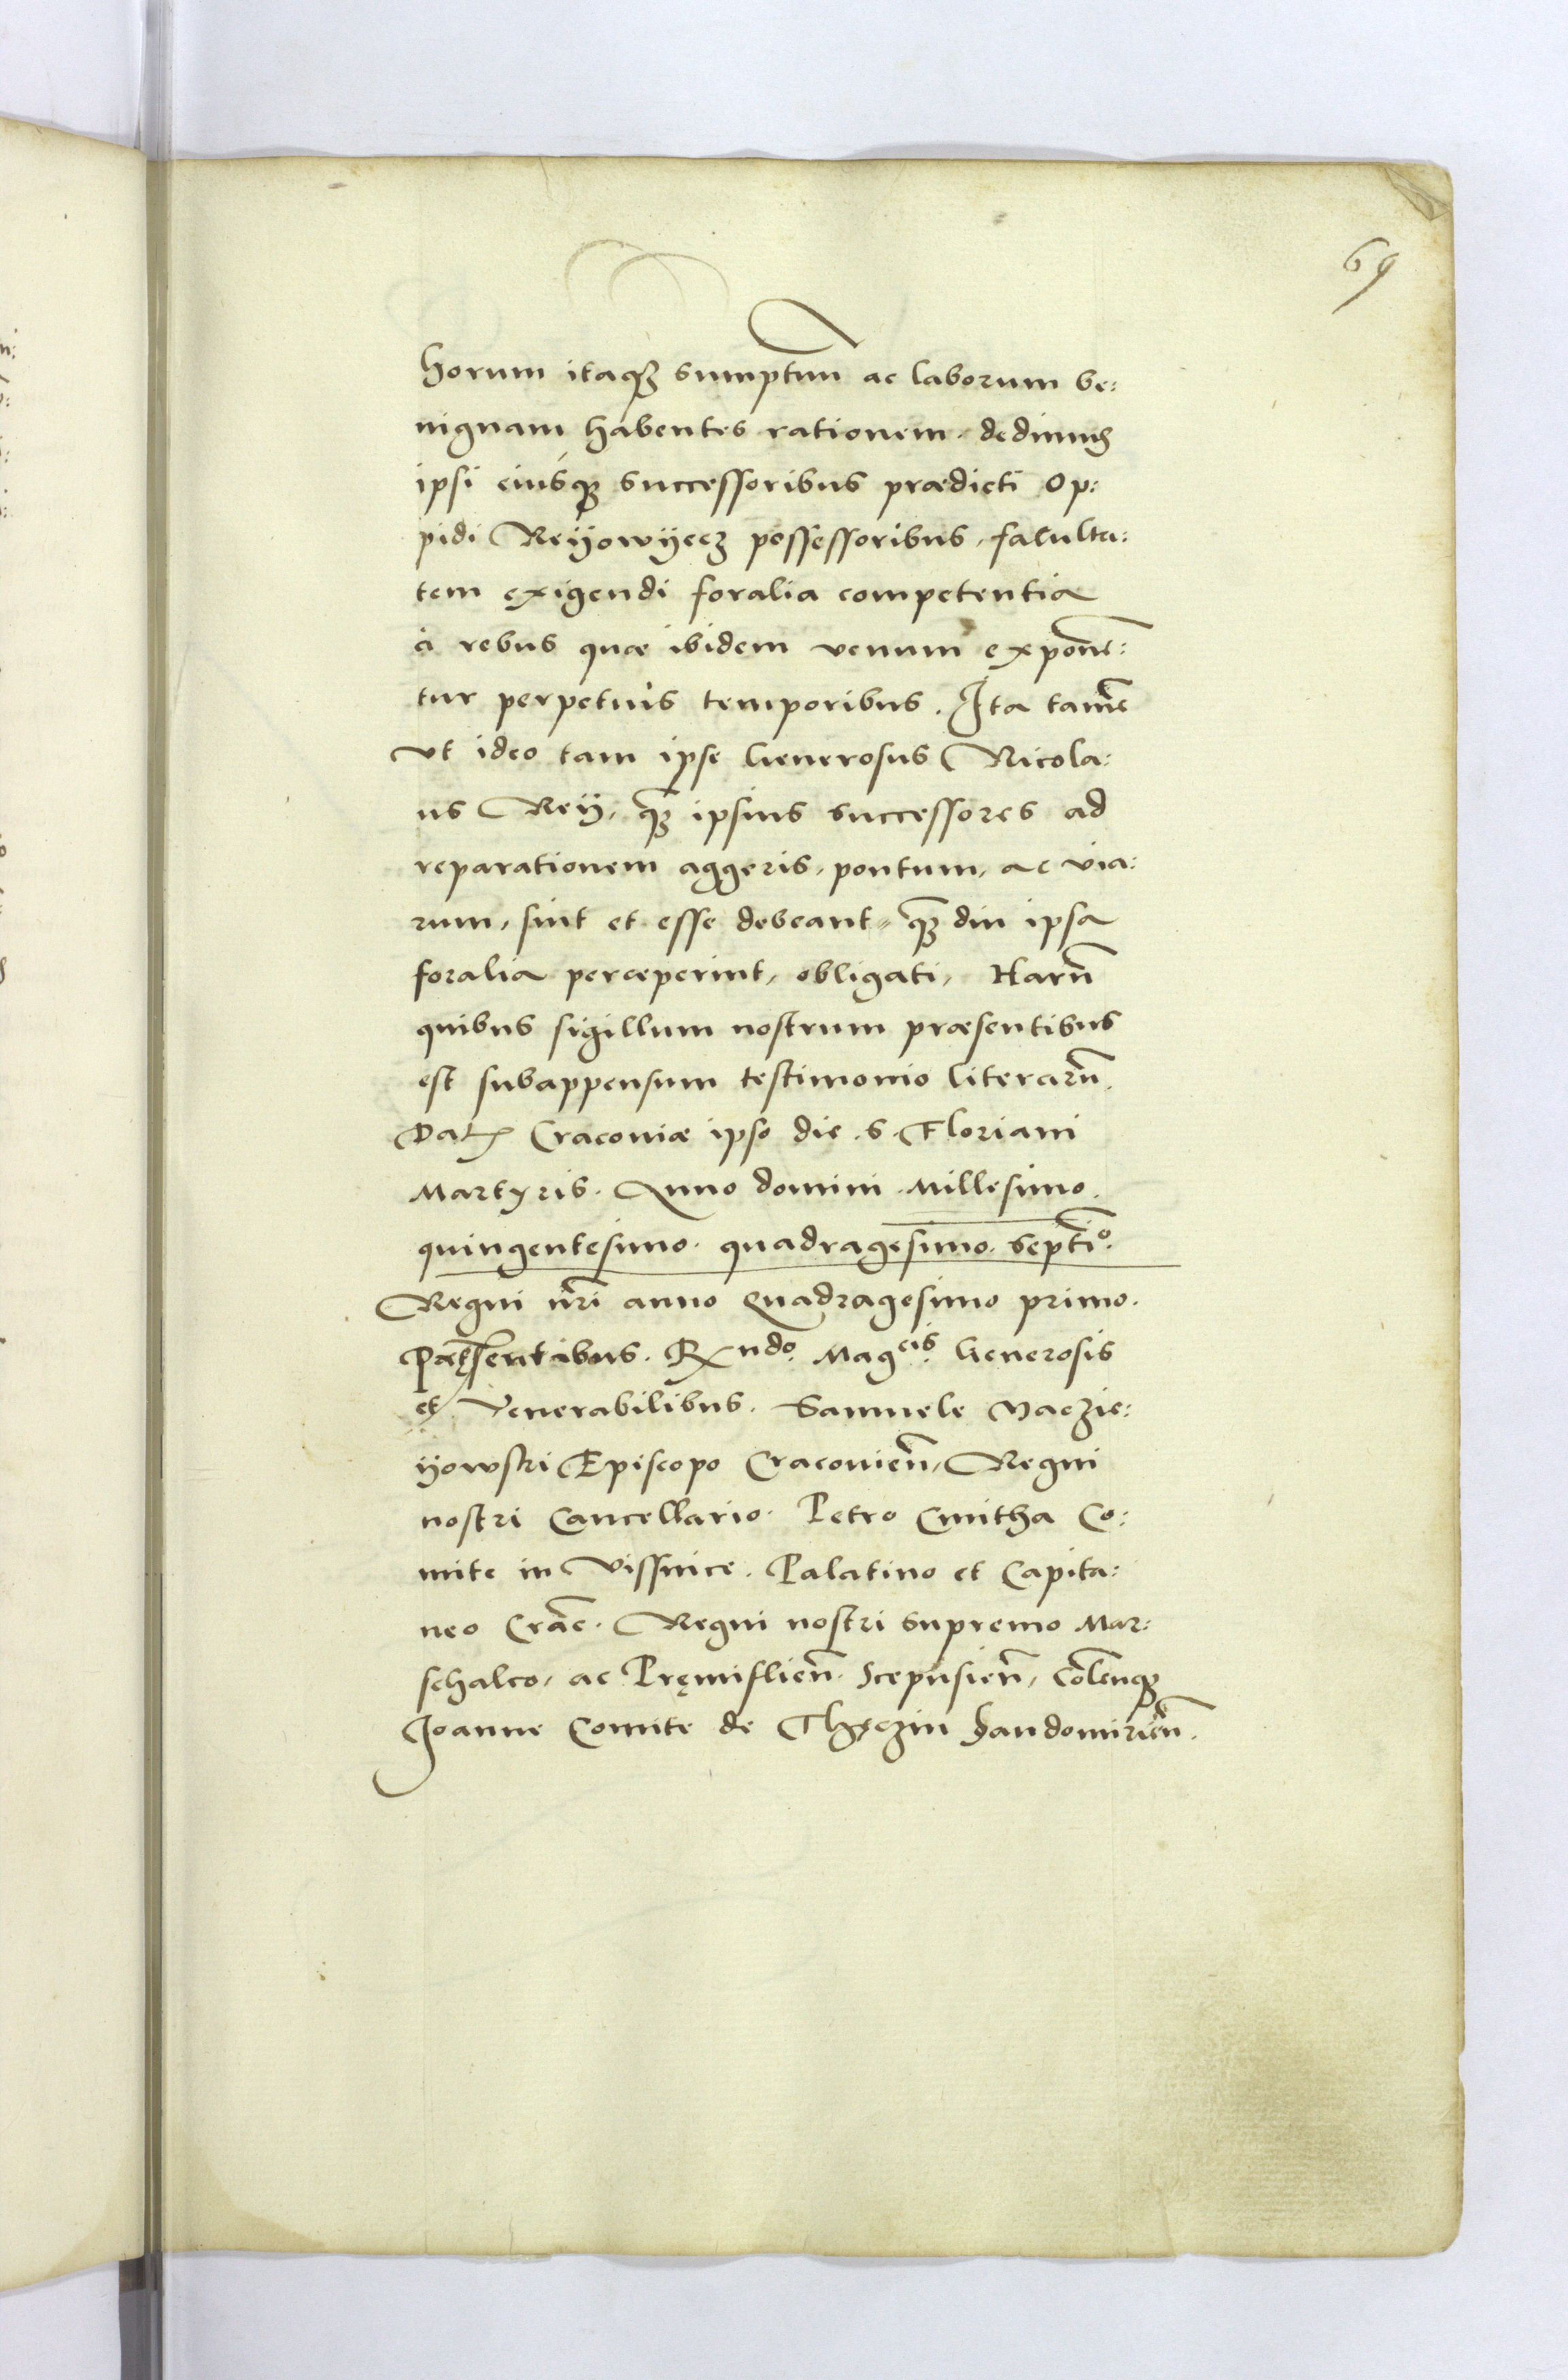 69
Horum itaq3 sumptuu ac laborum be:
nignam habentes rationem. dedimus
ipsi eiusq3 successoribus prædicti Op:
pidi Reyowyecz possessoribus, faculta:
tem exigendi foralia competentia
à rebus quæ ibidem venum expone̅:
tur perpetuis temporibus. Ita tame̅
vt ideo tam ipse Generosus Nicola:
us Rey, q3̅ ipsius successores ad
reparationem aggeris, pontum, ac via:
rum, sint et esse debeant, q3̅ diu ipsa
foralia perceperint, obligati, Haru̅
quibus sigillum nostrum præsentibus
est subappensum testimonio literaru̅.
Dat. Cracoviæ ipso die .S. Floriani
Martyris. Anno domini .Millesimo.
quingentesimo. quadragesimo. septi̅o.
Regni nr̅i anno Quadragesimo primo.
Præsentibus. Rndo. Magcis. Generosis
et Venerabilibus. Samuele Maczie:
yowski Episcopo Cracovien̅, Regni
nostri Cancellario. Petro Cmitha Co:
mite in Vissnice. Palatino et Capita:
neo Crac̅. Regni nostri Supremo Mar:
schalco, ac Pręmislien̅. Scepusien̅, Colen̅q3
Joanne Comite de Thęczin Sandomirien̅.